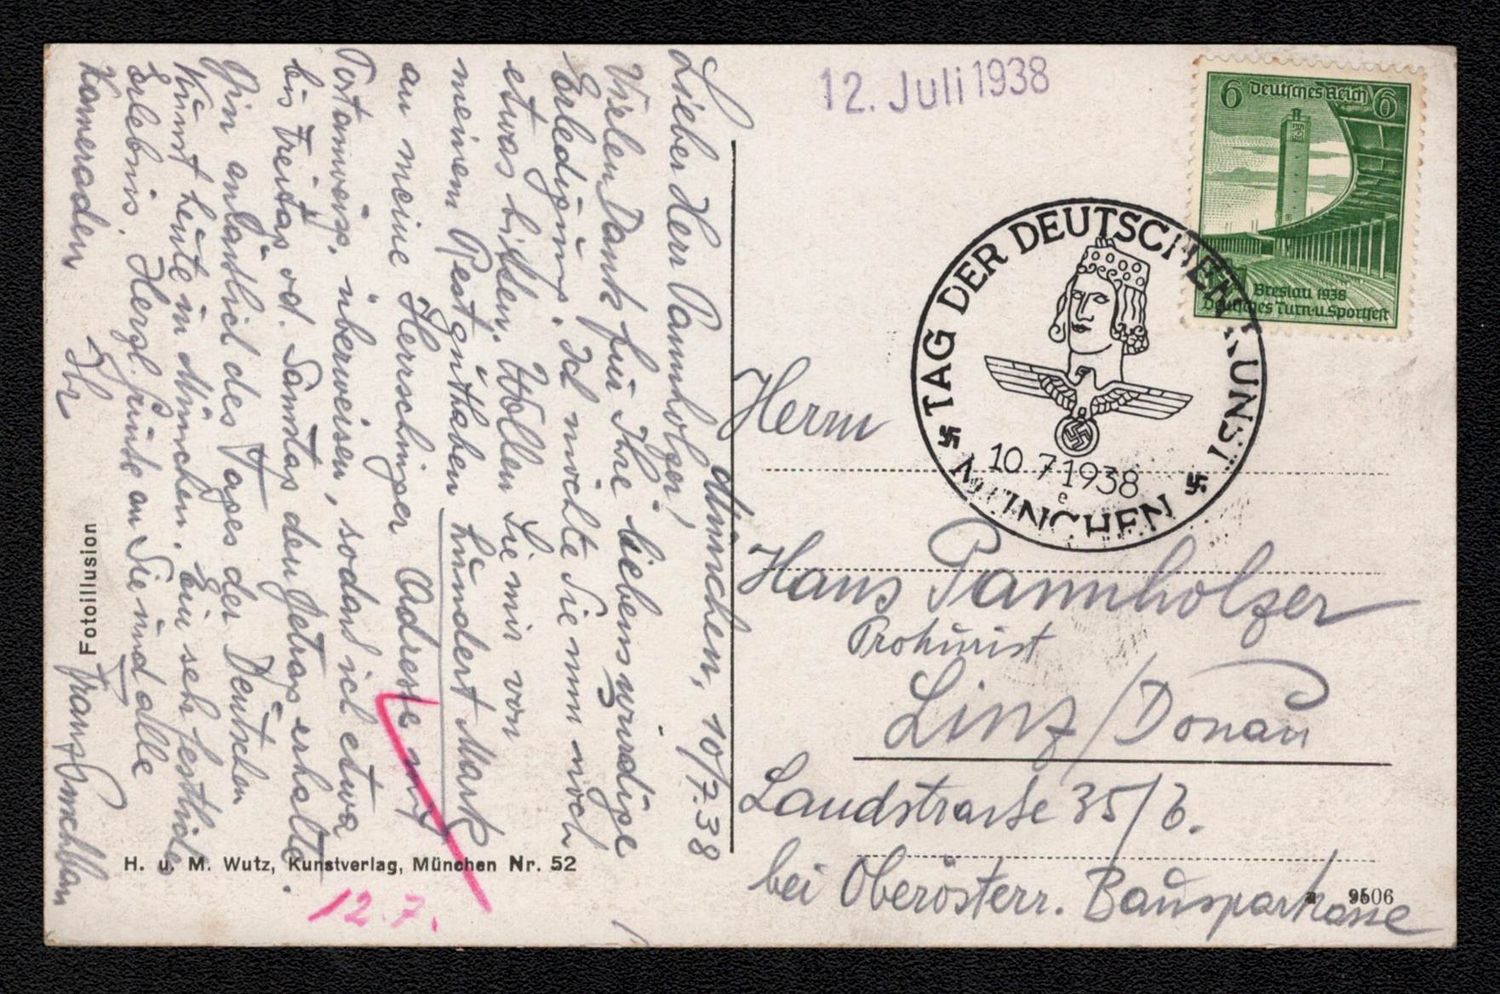 12. Juli 1938
6 Deutsches Reich 6
Breslau 1938
Deutsches Turn-u. Sportfest
TAG DER DEUTSCHEN KUNST
10 7 1938
e
MÜNCHEN
München, 10/7.38
Lieber Herr Pannholzer!
Vielen Dank für Ihre liebenswürdige
Erledigung. Ich möchte Sie nun noch
etwas bitten. Wollen Sie mir von
meinem Restguthaben hundert Mark
an meine Herrschinger Adresse mit
Postanweisg. überweisen, sodass ich etwa
bis Freitag od. Samstag den Betrag erhalte.
Bin anlässlich des Tages der Deutschen
Kunst heute in München. Ein sehr festliches
Erlebnis. Herzl. Grüße an Sie und alle
Kameraden
Ihr
Franz
Fotoillusion
H. u. M. Wutz, Kunstverlag, München Nr. 52
12.7.
Herrn
Hans Pannholzer
Prokurist
Linz/Donau
Landstrasse 35/b.
bei Oberösterr. Bausparkasse
9506